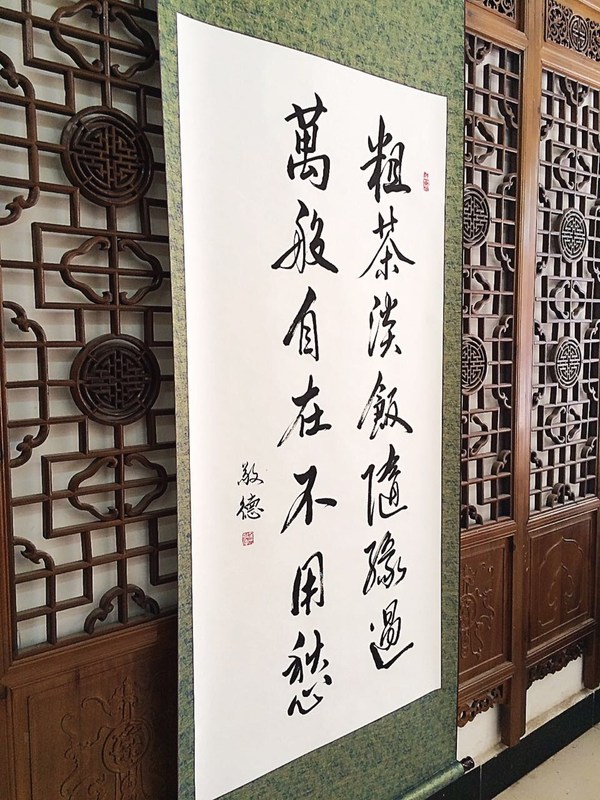 粗茶淡飯隨緣過
萬般自在不用愁
敬德